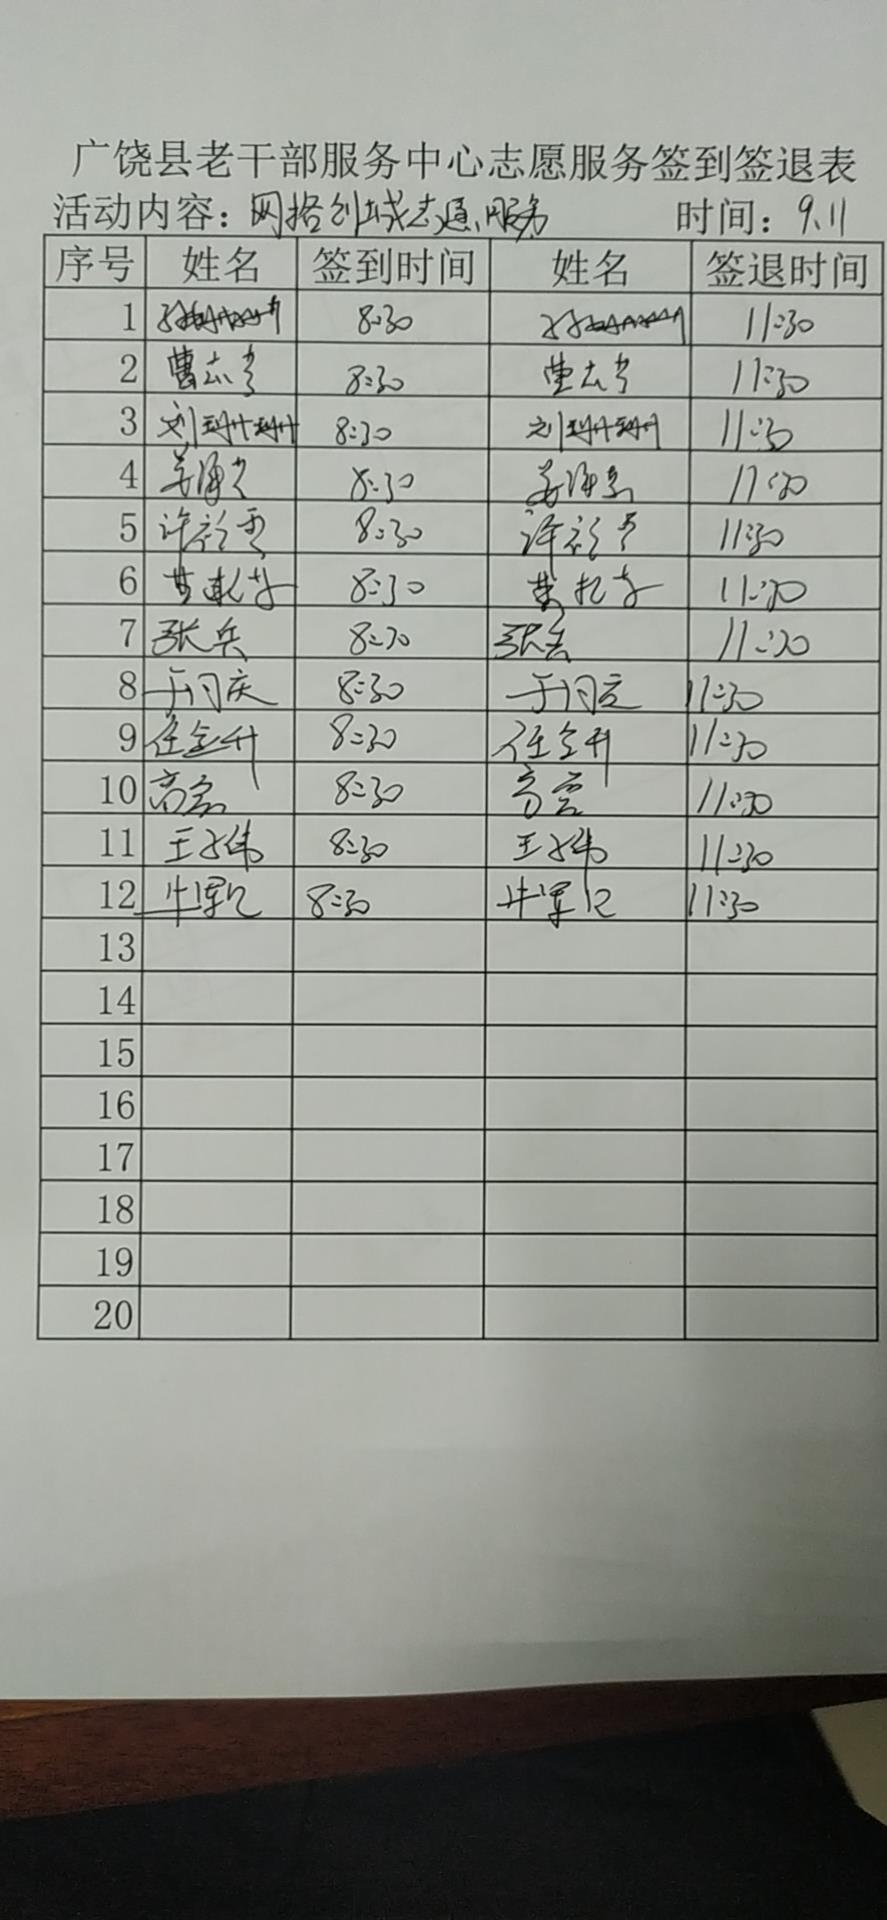 广饶县老干部服务中心志愿服务签到签退表
活动内容：网格创城志愿服务 时间：9.11
序号 姓名 签到时间 姓名 签退时间
1 8:30 11:30
2 曹 8:30 曹 11:30
3 刘珊珊 8:30 刘珊珊 11:30
4 8:30 11:30
5 许 8:30 许 11:30
6 8:30 11:30
7 张兵 8:30 张兵 11:30
8 于 庆 8:30 于 11:30
9 任金升 8:30 任金升 11:30
10 高 8:30 高 11:30
11 王 伟 8:30 王 伟 11:30
12 牛军 8:30 牛军 11:30
13
14
15
16
17
18
19
20